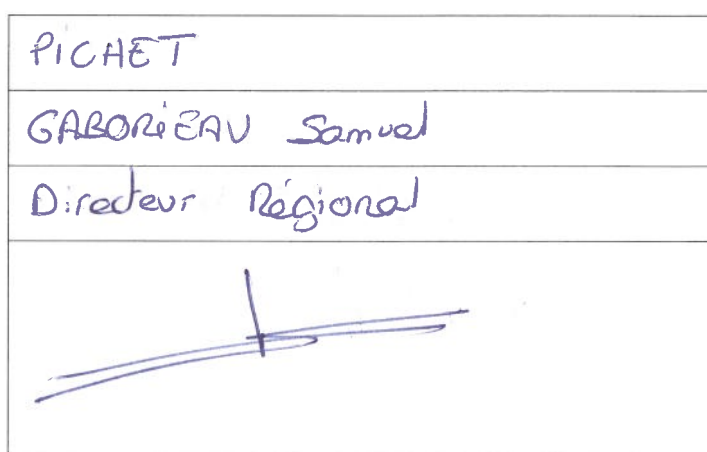 PICHET
GABORiEAU Samuel
Directeur Régional